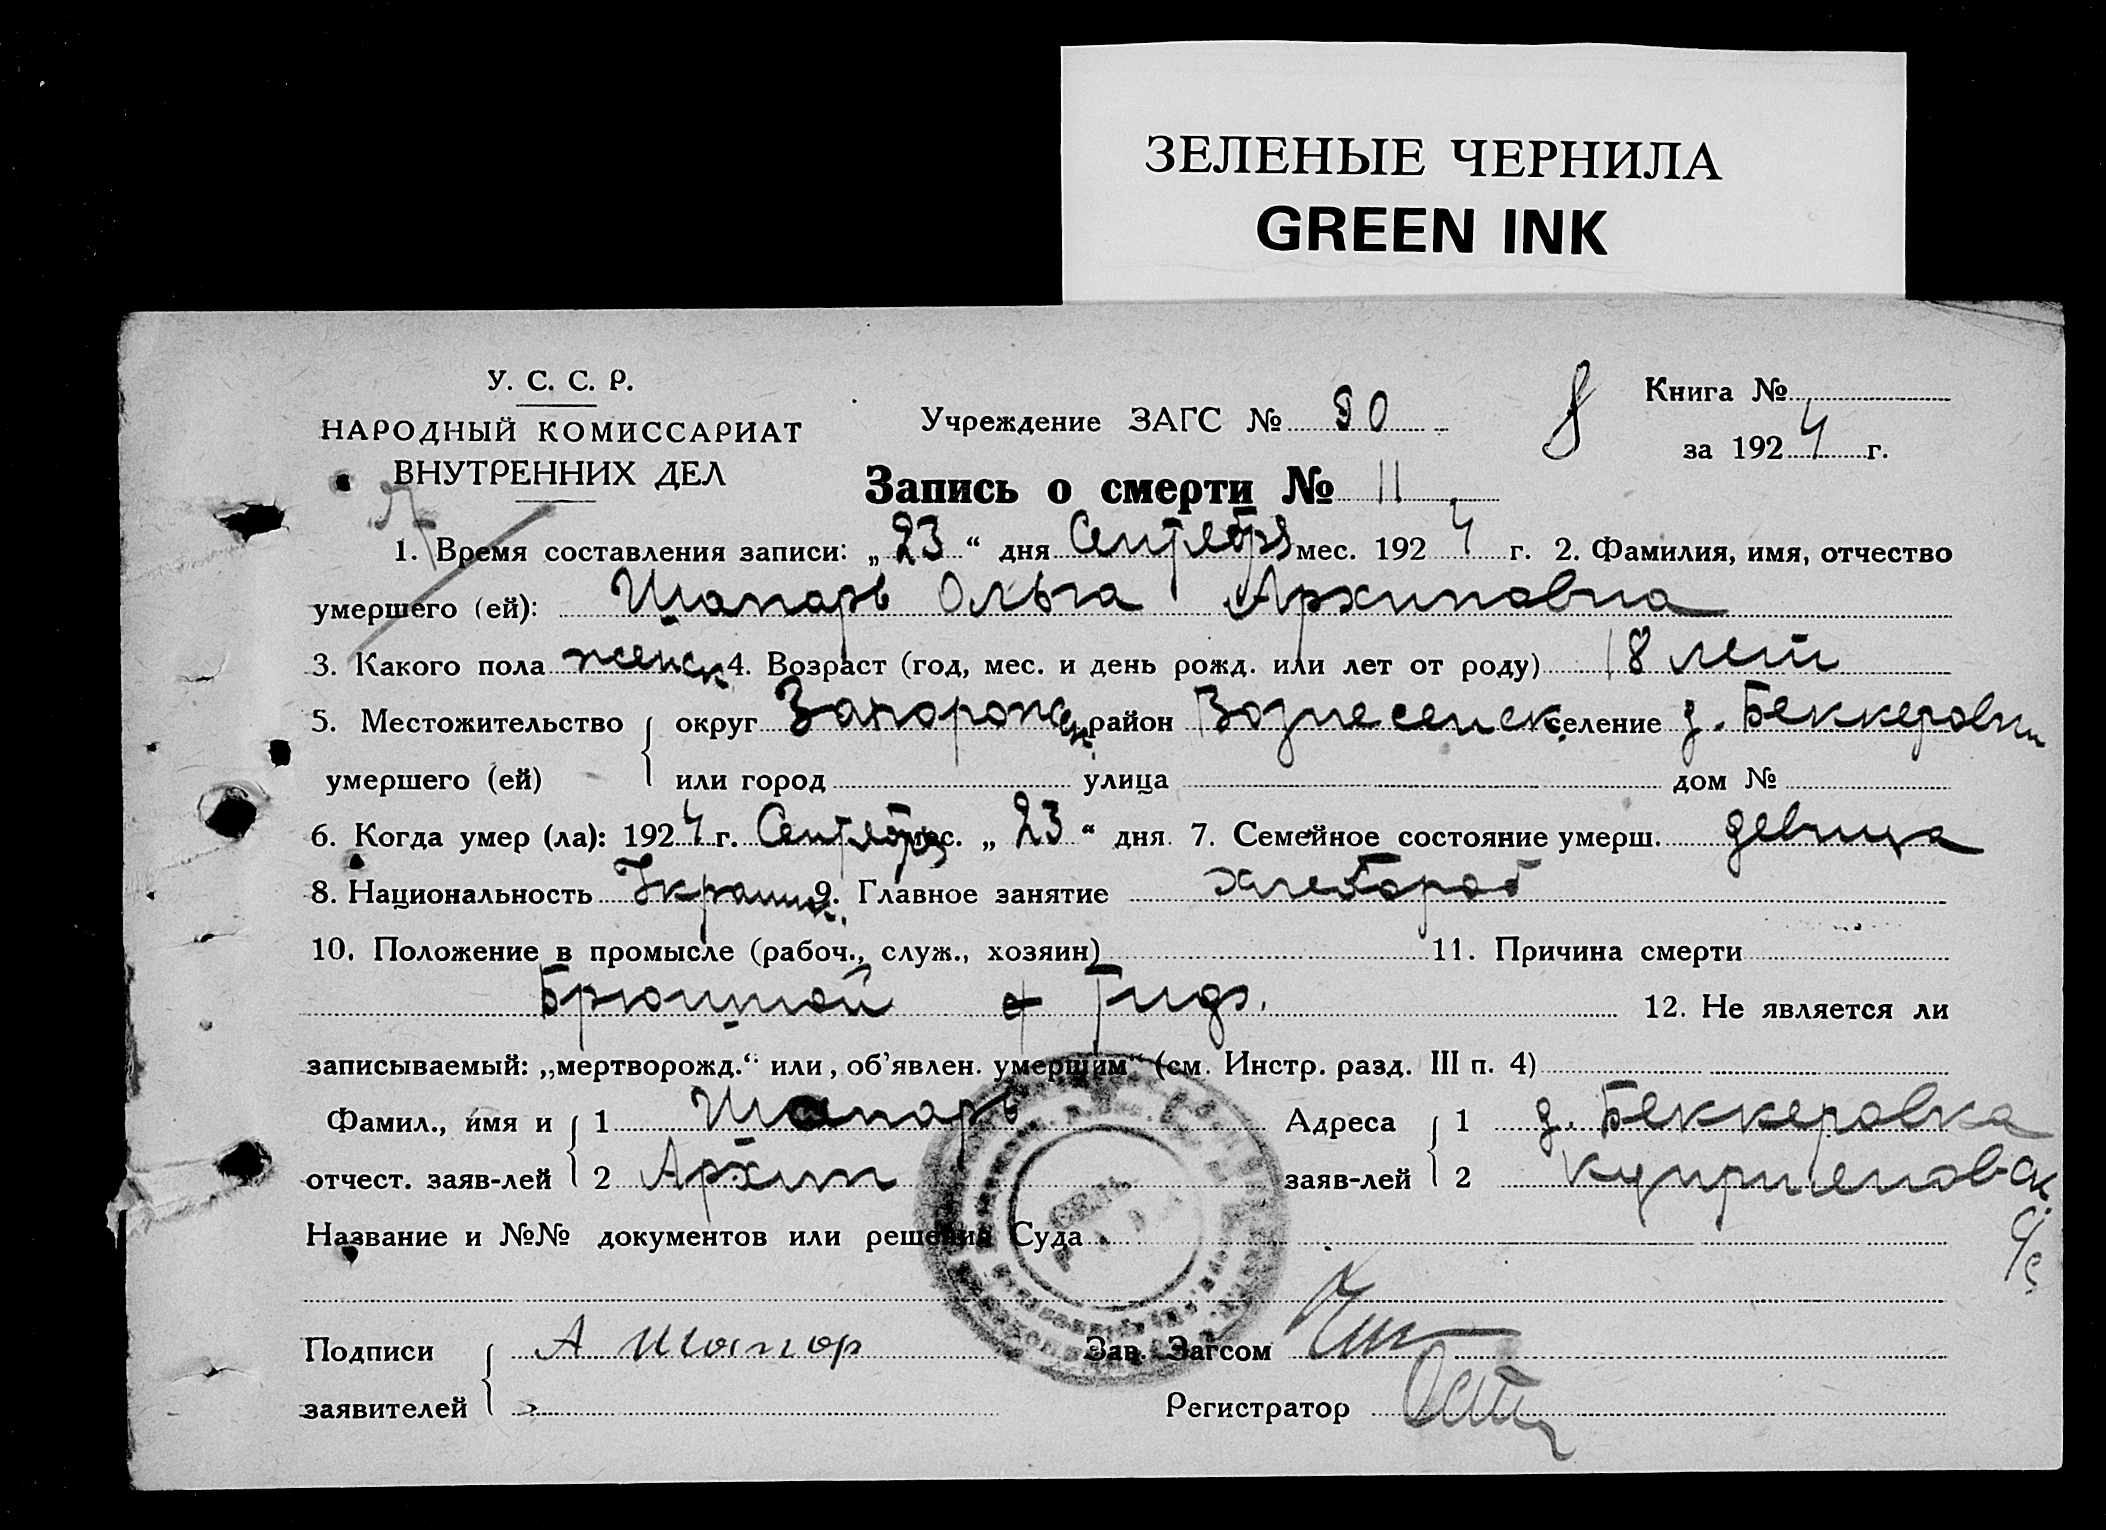 ЗЕЛЕНЫЕ ЧЕРНИЛА
GREEN INK
У. С. С. Р.
НАРОДНЫЙ КОМИССАРИАТ
ВНУТРЕННИХ ДЕЛ
Учреждение ЗАГС № 90
8
Книга №
за 1924 г.
Запись о смерти № 11
1. Время составления записи: „ 23 “ дня Сентября мес. 1924 г. 2. Фамилия, имя, отчество
умершего (ей): Шапарь Ольга Архиповна
3. Какого пола женск 4. Возраст (год, мес. и день рожд. или лет от роду) 18 лет
5. Местожительство округ Запорожск район Вознесенск селение д. Беккеровки
умершего (ей) или город улица дом №
6. Когда умер (ла): 1924 г. Сентябрь мес. „ 23 “ дня. 7. Семейное состояние умерш. девица
8. Национальность Украинс. 9. Главное занятие хлебороб
10. Положение в промысле (рабоч., служ., хозяин) 11. Причина смерти
Брюшной 12. Не является ли
записываемый: „мертворожд.“ или „об’явлен. умершим“ (см. Инстр. разд. III п. 4)
Фамил., имя и 1 Шапарь Адреса 1 д. Беккеровка
отчест. заяв-лей 2 Архип заяв-лей 2 Куприеновск.
с/с
Название и №№ документов или решения Суда
Подписи А Шапор Зав. Загсом
заявителей Регистратор